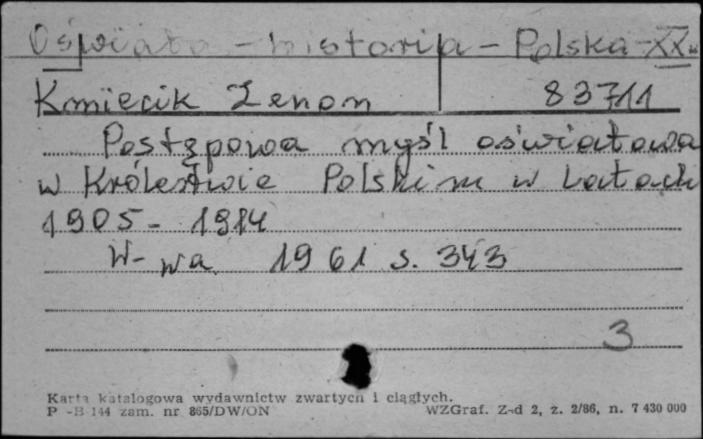 Oświata - historia - Polska XX w
Kmiecik Zenon 83711
Postępowa myśl oświatowa
w Królestwie Polskim w latach
1905 - 1914
W-wa 1961 s. 343
3
Karta katalogowa wydawnictw zwartych i ciągłych.
P-B 144 zam. nr 865/DW/ON WZGraf. Z-d 2, z. 2/86, n. 7 430 000